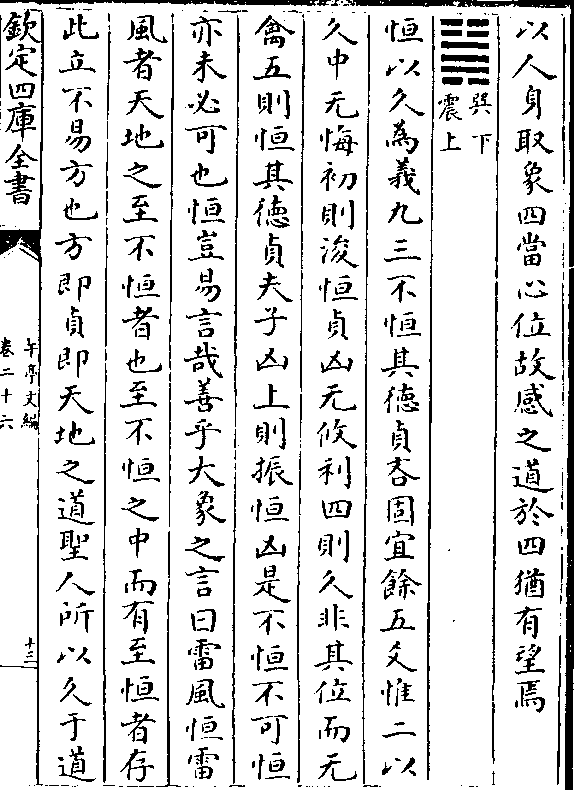 以人身取象四當心位故感之道於四猶有望焉
巽下
震上
恒以久為義九三不恒其徳貞吝固宜餘五爻惟二以
久中无悔初則浚恒貞凶无攸利四則久非其位而无
禽五則恒其徳貞夫子凶上則振恒凶是不恒不可恒
亦未必可也恒豈易言哉善乎大象之言曰雷風恒雷
風者天地之至不恒者也至不恒之中而有至恒者存
此立不易方也方即貞即天地之道聖人所以久于道
欽定四庫全書
午亭文編
卷二十六
十三